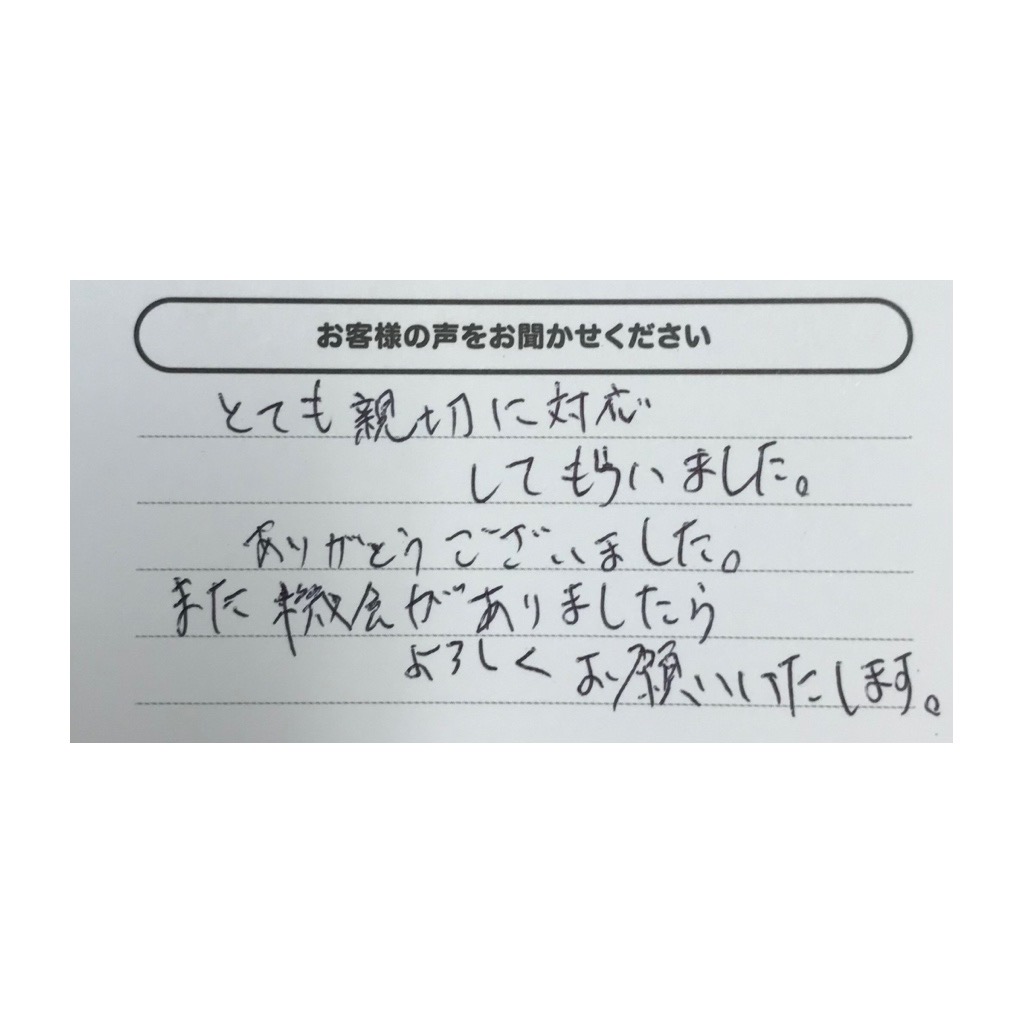 お客様の声をお聞かせください
とても親切に対応
してもらいました。
ありがとうございました。
また機会がありましたら
よろしくお願いいたします。